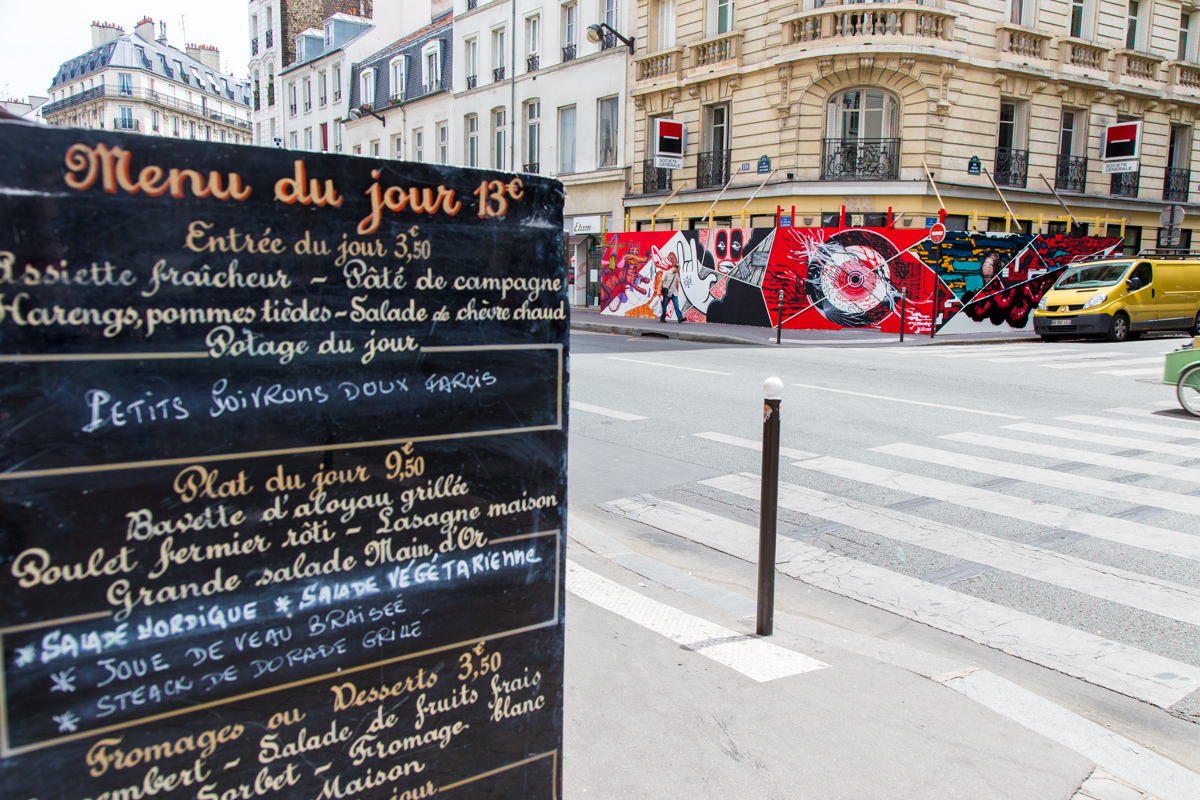 Menu du jour 13€
Entrée du jour 3,50€
Assiette fraîcheur - Pâté de campagne
Harengs, pommes tièdes - Salade de chèvre chaud
Potage du jour
PETITS POIVRONS DOUX FARCIS
Plat du jour 9,50€
Bavette d'aloyau grillée
Poulet fermier rôti - Lasagne maison
Grande salade Main d'Or
* SALADE NORDIQUE * SALADE VÉGÉTARIENNE
* JOUE DE VEAU BRAISEÉ
* STEACK DE DORADE GRILLÉ
Fromages ou Desserts 3,50€
Salade de fruits frais
Sorbet - Fromage blanc
Maison
jour
Etam
SOCIETE GENERALE
SOCIETE GENERALE